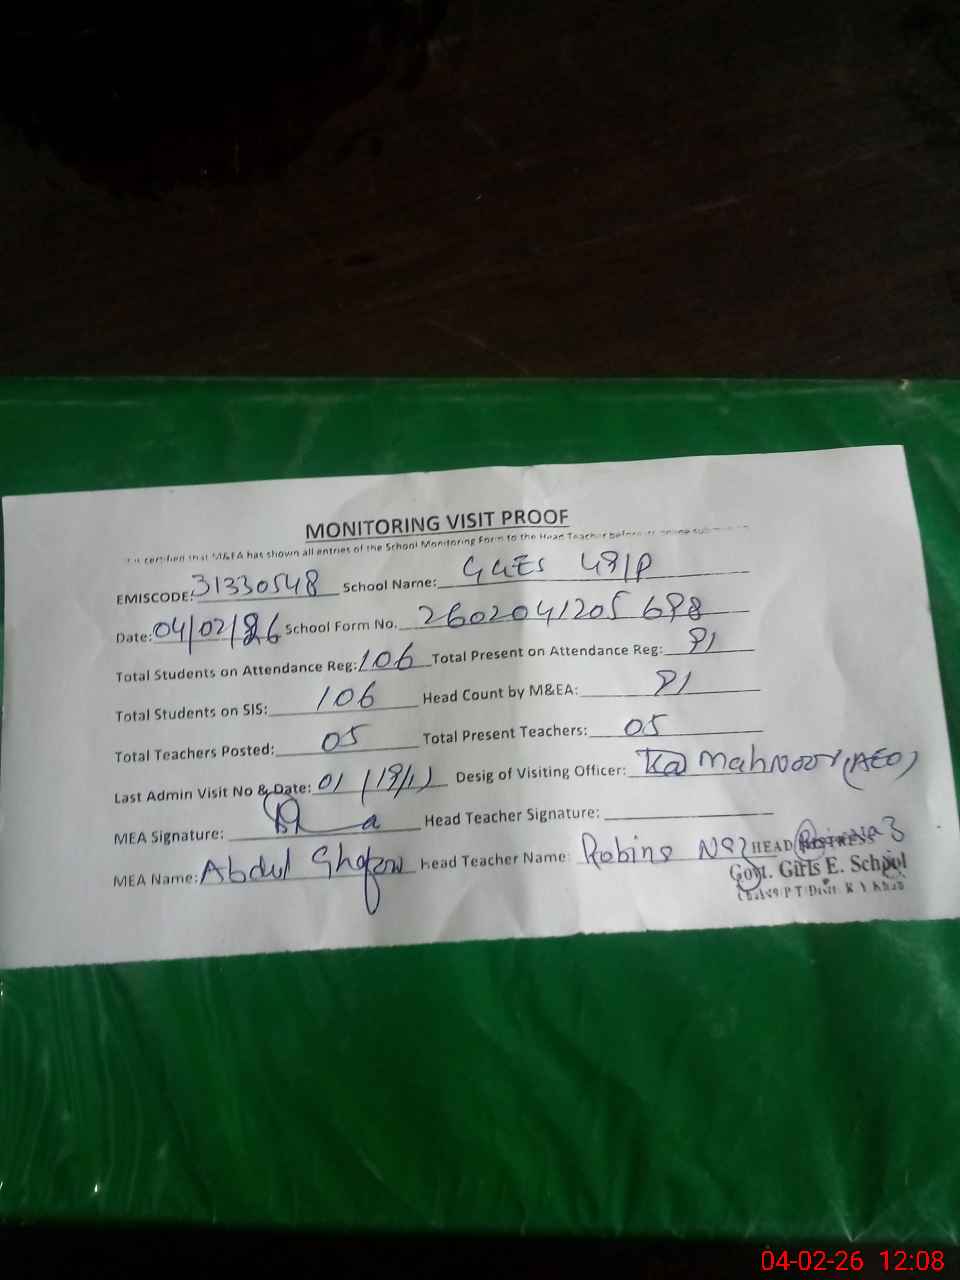 MONITORING VISIT PROOF
It is certified that M&EA has shown all entries of the School Monitoring Form to the Head Teacher before its online
EMISCODE: 31330548 School Name: GGES 49/P
Date: 04/02/26 School Form No. 2602041205698
Total Students on Attendance Reg: 106 Total Present on Attendance Reg: 91
Total Students on SIS: 106 Head Count by M&EA: 91
Total Teachers Posted: 05 Total Present Teachers: 05
Last Admin Visit No & Date: 01 (19/1) Desig of Visiting Officer: Mahnoor (AEO)
MEA Signature: Head Teacher Signature:
MEA Name: Abdul Ghafoor head Teacher Name: Robina
HEAD MISTRESS
Govt. Girls E. School
Chak 49/P T/Distt. R Y Khan
04-02-26 12:08